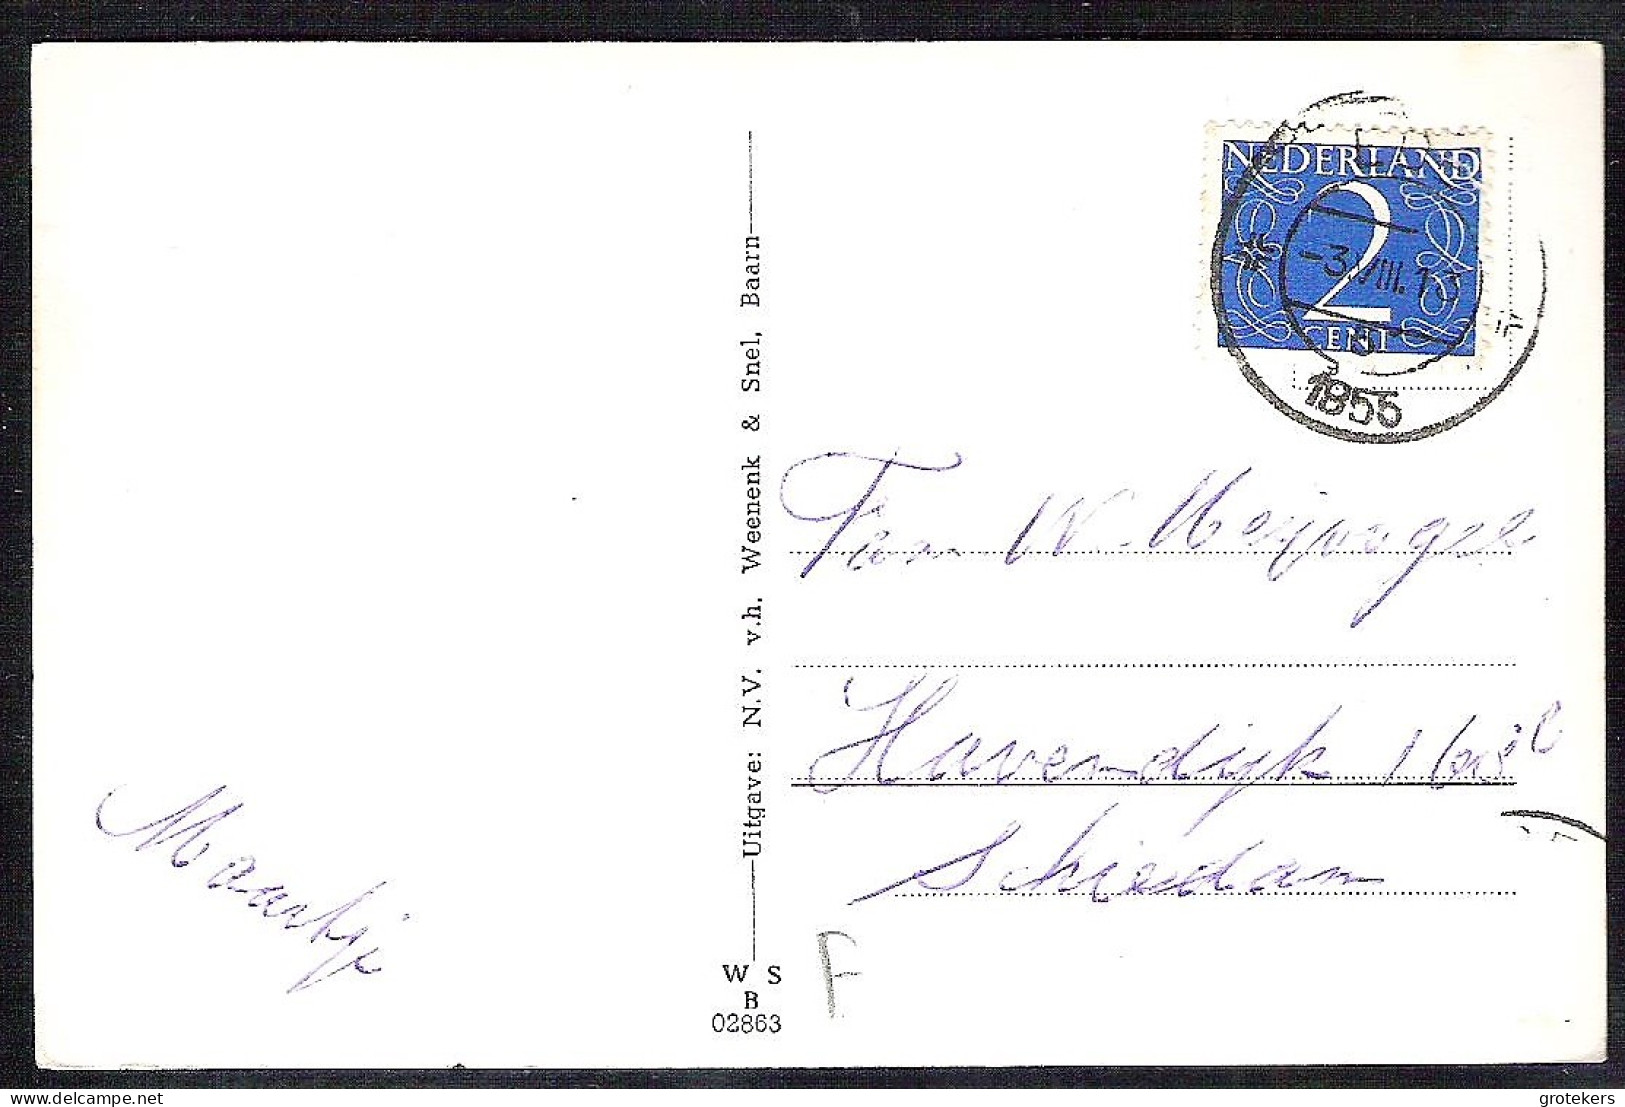 NEDERLAND
2
CENT
-3.VIII.13
1955
Fam W. Meijvogel
Havendijk
Schiedam
Maartje
Uitgave: N.V. v.h. Weenenk & Snel, Baarn
W S
B
02863
F
delcampe.net
grotekers